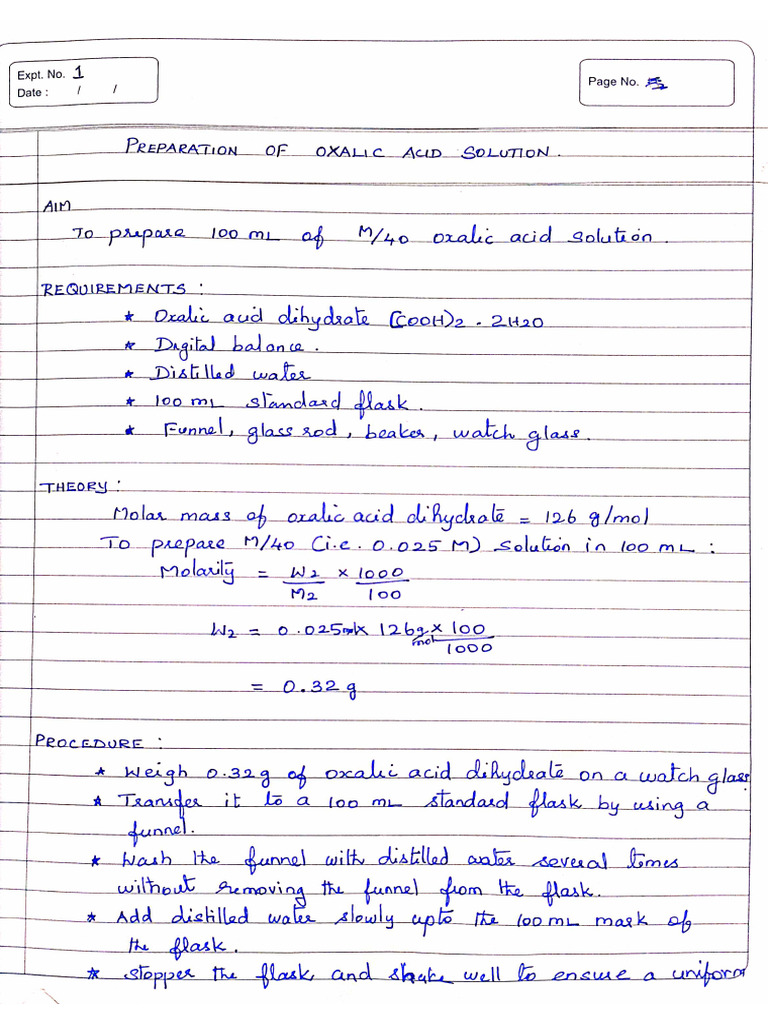 Expt. No. 1
Date : / /
Page No.
PREPARATION OF OXALIC ACID SOLUTION.
AIM
To prepare 100 mL of M/40 oxalic acid solution.
REQUIREMENTS :
* Oxalic acid dihydrate (COOH)2 . 2H2O
* Digital balance.
* Distilled water
* 100 mL standard flask.
* Funnel, glass rod, beaker, watch glass.
THEORY :
Molar mass of oxalic acid dihydrate = 126 g/mol
To prepare M/40 (i.e. 0.025 M) solution in 100 mL :
Molarity = W2/M2 x 1000/100
W2 = 0.025 x 126 g/mol x 100/1000
= 0.32 g
PROCEDURE :
* Weigh 0.32g of oxalic acid dihydrate on a watch glass.
* Transfer it to a 100 mL standard flask by using a
funnel.
* Wash the funnel with distilled water several times
without removing the funnel from the flask.
* Add distilled water slowly upto the 100 mL mark of
the flask.
* Stopper the flask and shake well to ensure a uniform